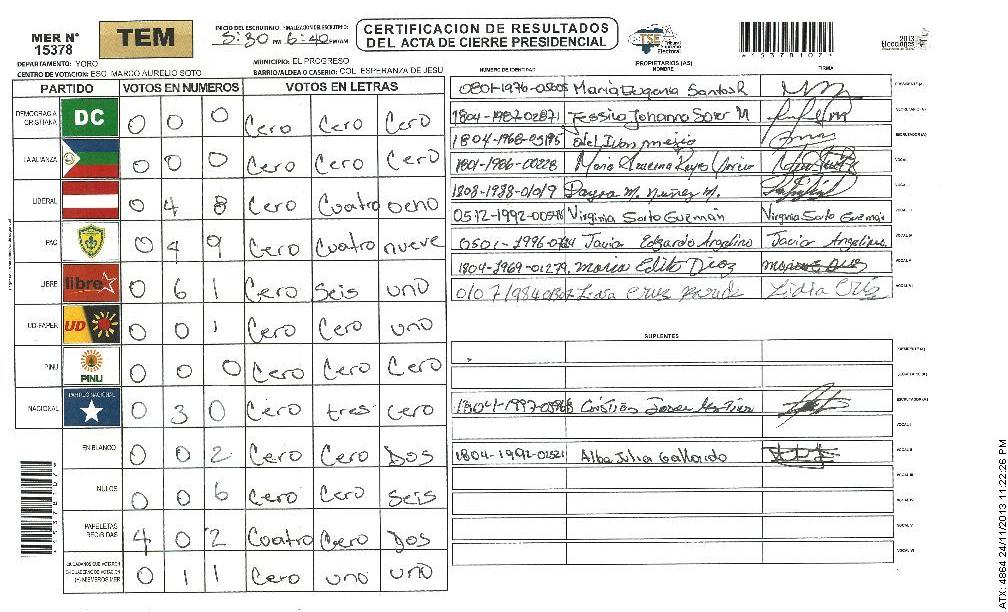 MER N° 15378
TEM
INICIO DEL ESCRUTINIO: FINALIZACION DEL ESCRUTINIO:
5:30 PM 6:40 PM/AM
CERTIFICACION DE RESULTADOS
DEL ACTA DE CIERRE PRESIDENCIAL
TSE Tribunal Supremo Electoral
*1537810?*
2013
Elecciones
DEPARTAMENTO: YORO
MUNICIPIO: EL PROGRESO
CENTRO DE VOTACION: ESC. MARCO AURELIO SOTO
BARRIO/ALDEA O CASERIO: COL. ESPERANZA DE JESU
PARTIDO VOTOS EN NUMEROS VOTOS EN LETRAS
DEMOCRACIA CRISTIANA DC 0 0 0 Cero Cero Cero
LA ALIANZA 0 0 0 Cero Cero Cero
LIBERAL 0 4 8 Cero Cuatro ocho
PAC 0 4 9 Cero Cuatro nueve
LIBRE libre 0 6 1 Cero Seis uno
UD-FAPER UD 0 0 1 Cero Cero uno
PINU PINU 0 0 0 Cero Cero Cero
NACIONAL PARTIDO NACIONAL 0 3 0 Cero tres cero
EN BLANCO 0 0 2 Cero Cero Dos
NULOS 0 0 6 Cero Cero Seis
PAPELETAS RECIBIDAS 4 0 2 Cuatro Cero Dos
CIUDADANOS QUE VOTARON EN CUADERNO DE VOTACION (+) MIEMBROS MER 0 1 1 Cero uno uno
NUMERO DE IDENTIDAD PROPIETARIOS (AS) NOMBRE FIRMA
Maria Eugenia Santos R PRESIDENTE(A)
1804-1987-02871 Jessica Johanna Soler M SECRETARIO(A)
1804-1968-05195 ESCRUTADOR(A)
1801-1986-00228 Maria Reyes VOCAL I
1808-1988-01019 Dayra M. Nuñez M. VOCAL II
Virginia Sarto Guzmán Virginia Sarto Guzmán VOCAL III
Javier Edgardo Argelino Javier Angelino VOCAL IV
1804-1969-01279. Maria Elito Diaz VOCAL V
Lidia Cruz Lidia Cruz VOCAL VI
SUPLENTES
PRESIDENTE(A)
SECRETARIO(A)
Cristian Javier Martinez ESCRUTADOR(A)
VOCAL I
1804-1992-02521 Alba Julia Gallardo VOCAL II
VOCAL III
VOCAL IV
VOCAL V
VOCAL VI
ATX: 4864 24/11/2013 11:22:26 PM